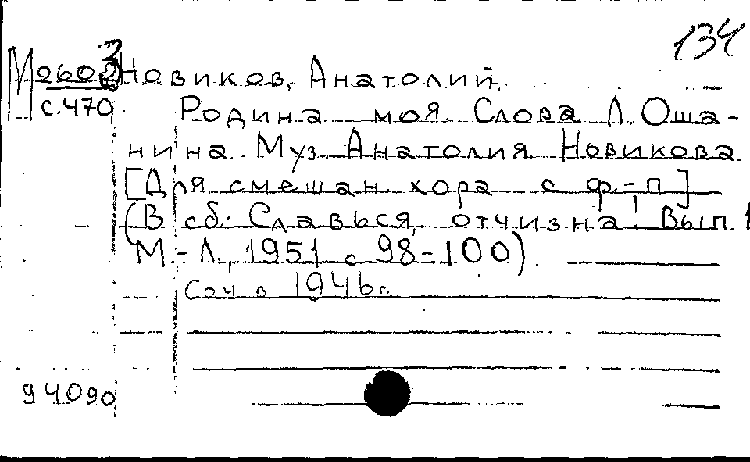 134
Новиков, Анатолий.
с.470 Родина моя Слова Л. Оша-
нина Муз Анатолия Новикова
[Для смешан хора с ф-п]
(В сб: Славься, отчизна! Вып. 1
М-Л, 1951 с 98-100)
Соч в 1946г.
94090